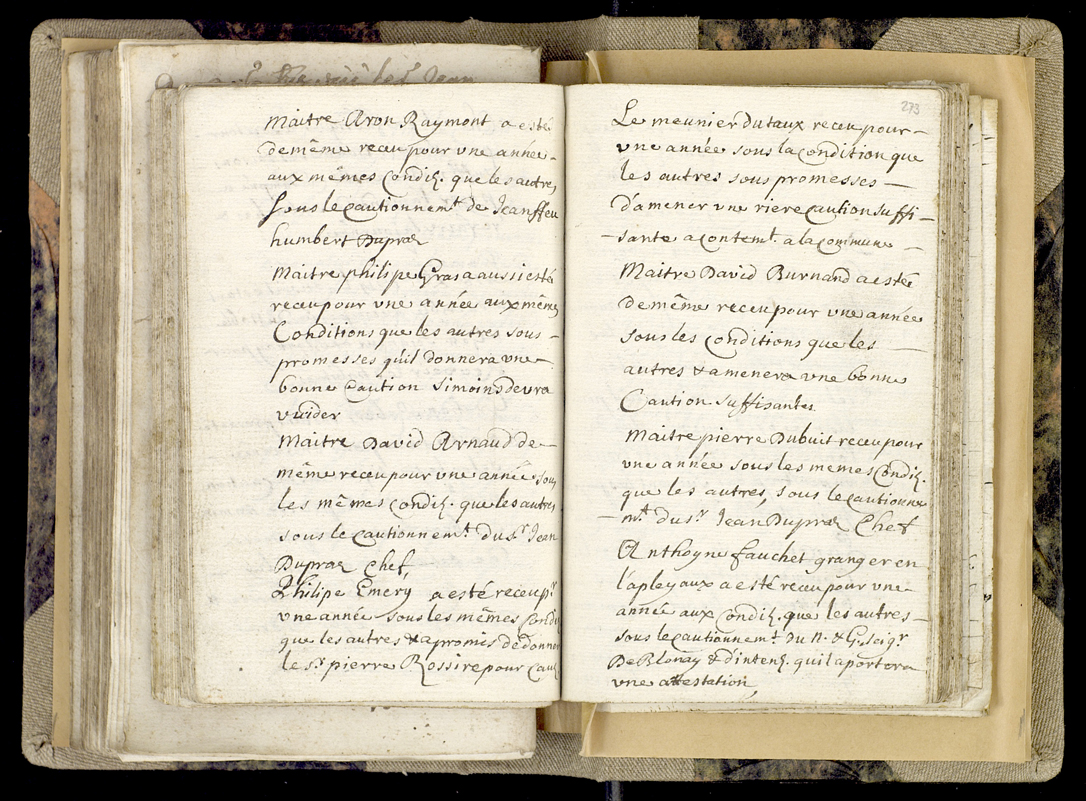 Maitre Aron Raymont a esté
de même receu pour vne année
aux mêmes Condi͠o. que les autres
sous le Cautionnemt. de Jean ffeu
humbert Dupraz
Maitre philipe Gras a aussi esté
receu pour vne année aux mêmes
Conditions que les autres sous
promesses qu'il donnera vne
bonne Caution Simoins devra
vuider
Maitre David Arnaud de
même receu pour vne année sous
les mêmes Condi͠o. que les autres
sous le Cautionnemt. du Sr. Jean
Dupraz Chef,
Philipe Emery a esté receu pr.
vne année sous les mêmes Condi
que les autres & a promis de donner
le Sr. pierre Rossire pour Cau
273
Le meunier Dutaux receu pour
vne année sous la Condition que
les autres sous promesses
d'amener vne riere Caution suffi-
-sante a contemt. a la Commune
Maitre David Burnand a esté
de même receu pour vne année
sous les Conditions que les
autres & amenera vne bonne
Caution suffisantes
Maitre pierre Dubuit receu pour
vne année sous les memes Condi͠o.
que les autres, sous le Cautionne
-mt. du Sr. Jean Dupraz Chef
Anthoyne fauchet granger en
l'apleyaux a esté receu pour vne
année aux Condi͠o. que les autres
sous le Cautionnemt. du N. & G. seigr.
De Blonay & d'inten͠o. qu'il aportera
vne attestation,